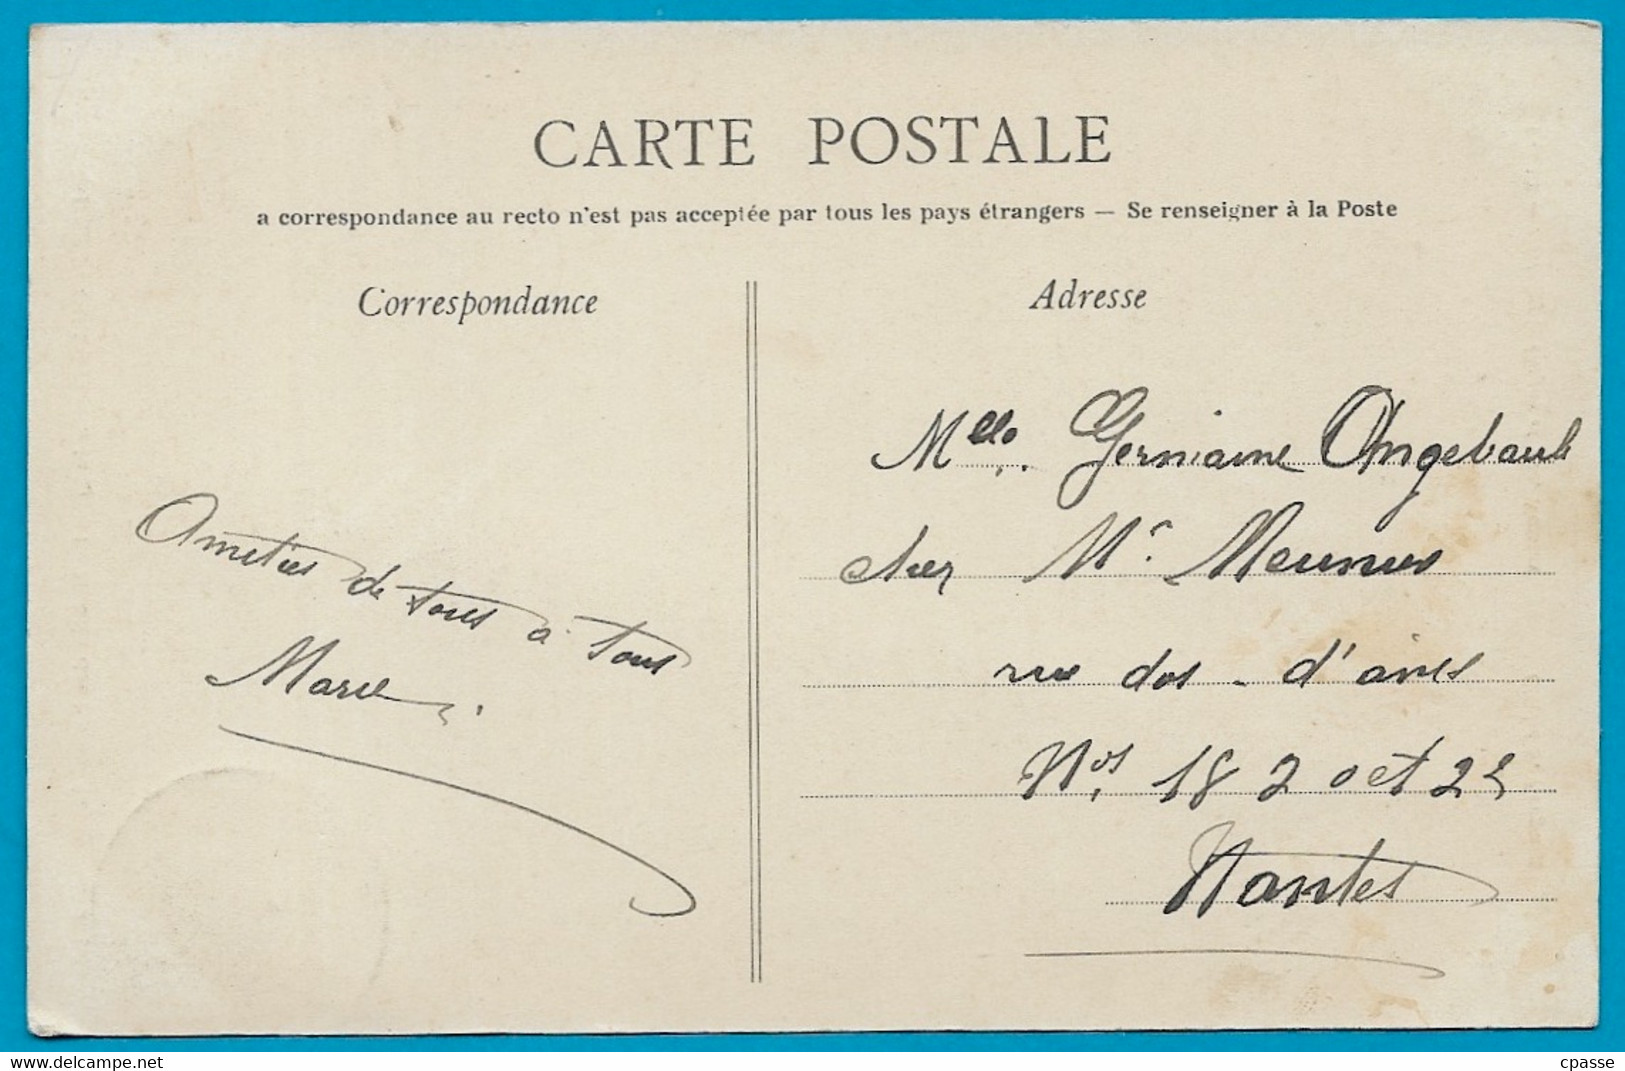 CARTE POSTALE
a correspondance au recto n'est pas acceptée par tous les pays étrangers — Se renseigner à la Poste
Correspondance
Adresse
Amitiés de tous à tous
Marie
Mlle Germaine Angebault
chez Mr Meunier
rue dos - d'ânes
Nos 18 2 oct 22
Nantes
www.delcampe.net
cpasse